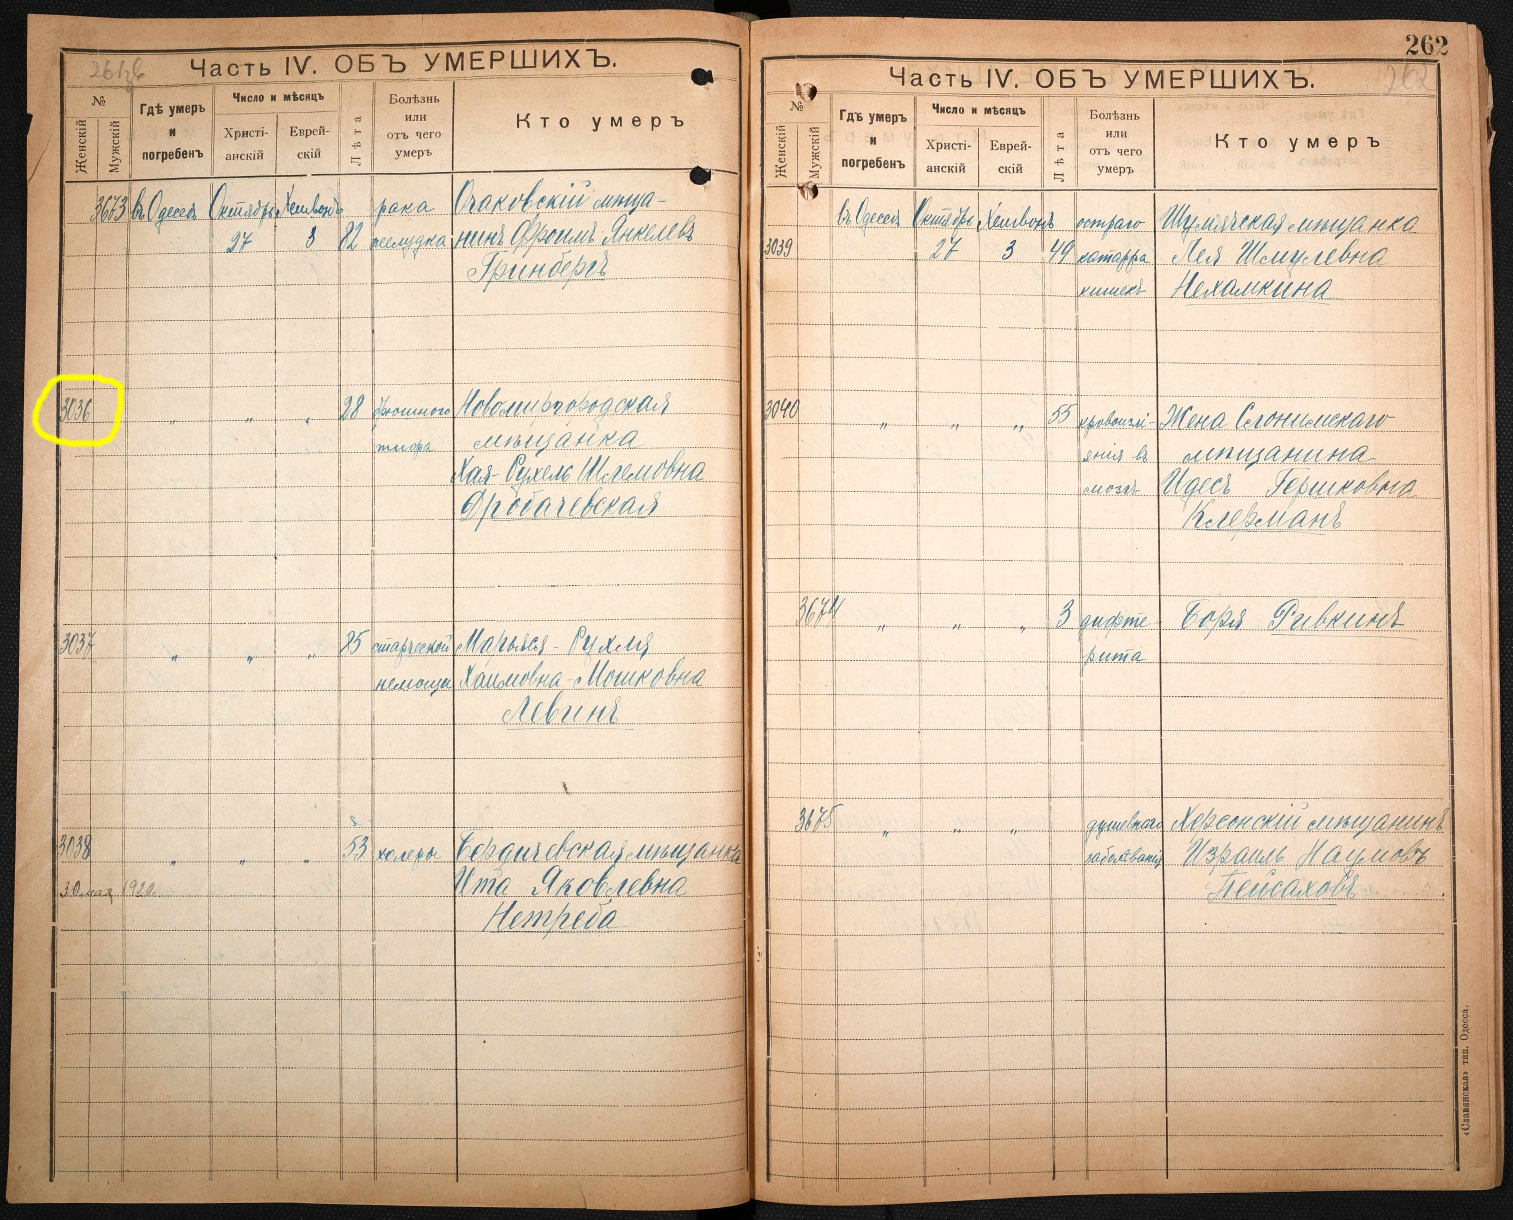 Часть IV. ОБЪ УМЕРШИХЪ.
№
Женскій
Мужскій
Гдѣ умеръ
и
погребенъ
Число и мѣсяцъ
Христі-
анскій
Еврей-
скій
Лѣта
Болѣзнь
или
отъ чего
умеръ
Кто умеръ
3673 въ Одессѣ Октябрь Хешвонъ рака Очаковскій мѣща-
27 3 82 желудка нинъ Фроимъ Янкелевъ
Гринбергъ
3036 „ „ „ 28 брюшного Новомиргородская
тифа мѣщанка
Хая-Рухель Шлемовна
3037 „ „ „ 85 старческой Марьяся-Рухля
немощи Хаимовна-Мошковна
Левинъ
3038 „ „ „ 53 холеры Бердичевская мѣщанка
30 мая 1920 Ита Яковлевна
Нетреба
262
262
Часть IV. ОБЪ УМЕРШИХЪ.
№
Женскій
Мужскій
Гдѣ умеръ
и
погребенъ
Число и мѣсяцъ
Христі-
анскій
Еврей-
скій
Лѣта
Болѣзнь
или
отъ чего
умеръ
Кто умеръ
въ Одессѣ Октябрь Хешвонъ остраго Шумячская мѣщанка
3039 27 3 49 катарра Лея Шмулевна
кишекъ Нехамкина
3040 „ „ „ 55 кровоизлі- Жена Слонимскаго
янія въ мѣщанина
мозгъ Идесъ Гершковна
Клерманъ
3674 „ „ „ 3 дифте- Боря Ривкинъ
рита
3675 „ „ „ душевнаго Херсонскій мѣщанинъ
заболѣванія Израиль Наумовъ
Пейсаховъ
«Славянская» тип. Одесса.